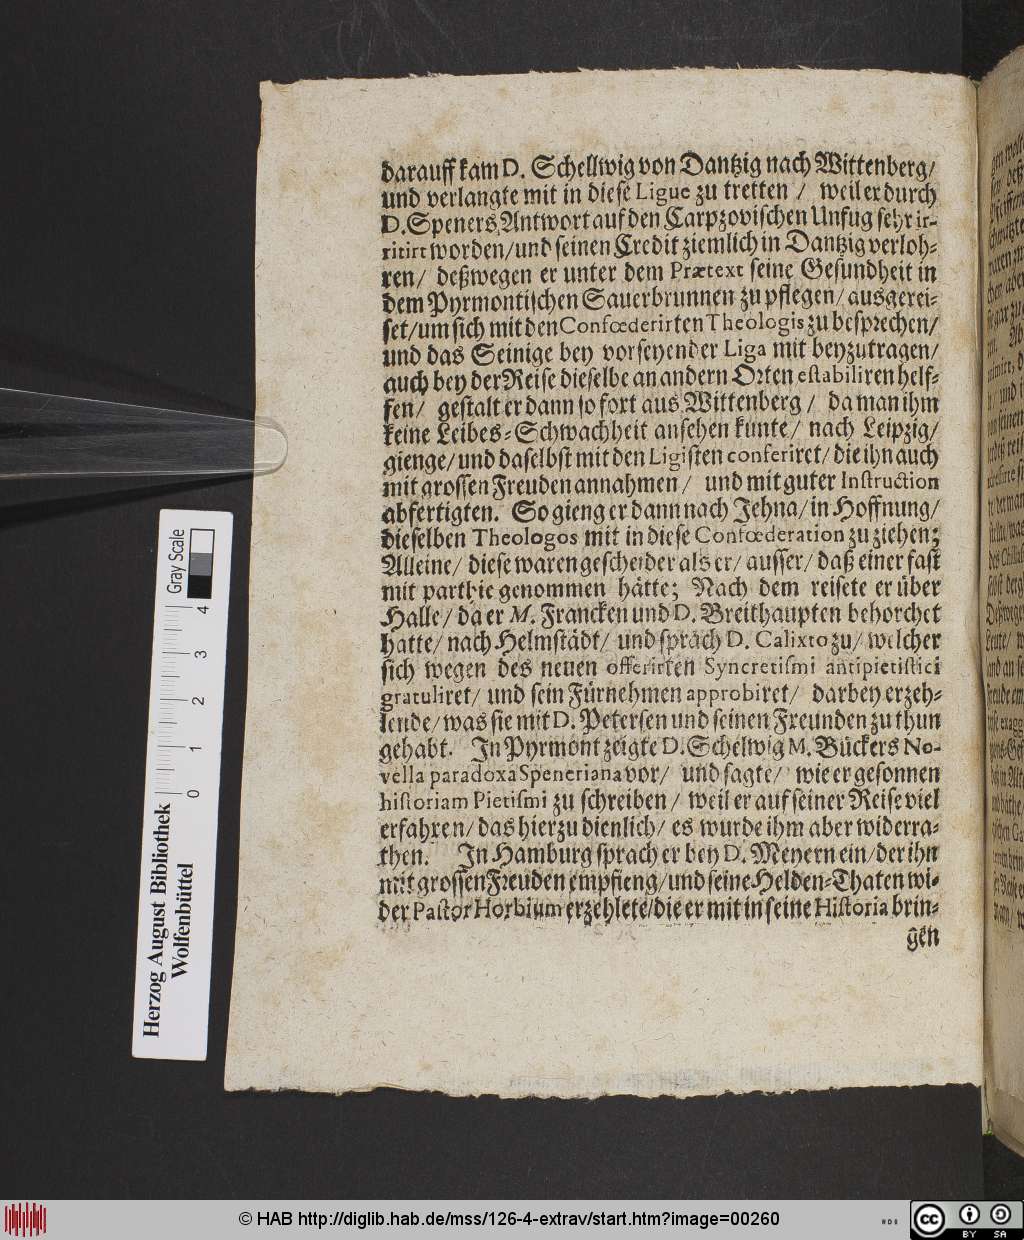 darauff kam D. Schellwig von Dantzig nach Wittenberg/
und verlangte mit in diese Ligue zu tretten / weil er durch
D. Speners Antwort auf den Carpzovischen Unfug sehr ir-
ritirt worden/und seinen Credit ziemlich in Dantzig verloh-
ren/ deßwegen er unter dem Prætext seine Gesundheit in
dem Pyrmontischen Sauerbrunnen zu pflegen/ausgerei-
set/um sich mit den Confœderirten Theologis zu besprechen/
und das Seinige bey vorseyender Liga mit beyzutragen/
auch bey der Reise dieselbe an andern Orten estabiliren helf-
fen/ gestalt er dann so fort aus Wittenberg / da man ihm
keine Leibes-Schwachheit ansehen kunte/ nach Leipzig/
gienge/und daselbst mit den Ligisten conferiret/die ihn auch
mit grossen Freuden annahmen/ und mit guter Instruction
abfertigten. So gieng er dann nach Jehna/in Hoffnung/
dieselben Theologos mit in diese Confœderation zu ziehen;
Alleine/ diese waren gescheider als er/ausser/daß einer fast
mit parthie genommen hätte; Nach dem reisete er über
Halle/da er M. Francken und D. Breithaupten behorchet
hatte/nach Helmstädt/ und sprach D. Calixto zu/welcher
sich wegen des neuen offerirten Syncretismi antipietistici
gratuliret/ und sein Fürnehmen approbiret/ darbey erzeh-
lende/was sie mit D. Petersen und seinen Freunden zu thun
gehabt. In Pyrmont zeigte D. Schelwig M. Bückers No-
vella paradoxa Speneriana vor/ und sagte/ wie er gesonnen
historiam Pietismi zu schreiben/ weil er auf seiner Reise viel
erfahren/das hierzu dienlich/ es wurde ihm aber widerra-
then. In Hamburg sprach er bey D. Meyern ein/der ihn
mit grossen Freuden empfieng/und seine Helden-Thaten wi-
der Pastor Horbium erzehlete/die er mit in seine Historia brin-
gen
Gray Scale
0 1 2 3 4
Herzog August Bibliothek
Wolfenbüttel
© HAB http://diglib.hab.de/mss/126-4-extrav/start.htm?image=00260
cc BY SA